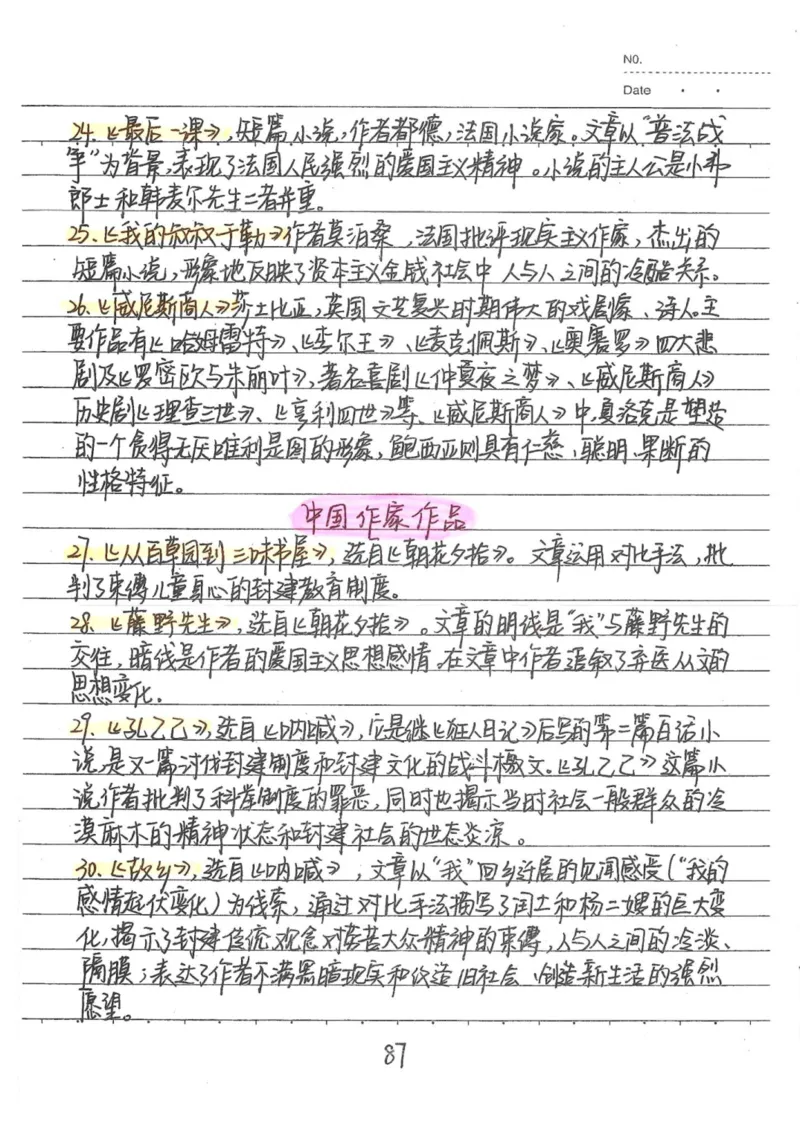 NO.
Date
24.《最后一课》,短篇小说,作者都德,法国小说家。文章以“普法战
争”为背景,表现了法国人民强烈的爱国主义精神。小说的主人公是小弗
郎士和韩麦尔先生二者并重。
25.《我的叔叔于勒》作者莫泊桑,法国批评现实主义作家,杰出的
短篇小说,形象地反映了资本主义金钱社会中人与人之间的冷酷关系。
26.《威尼斯商人》莎士比亚,英国文艺复兴时期伟大的戏剧家、诗人。主
要作品有《哈姆雷特》、《李尔王》、《麦克佩斯》、《奥赛罗》四大悲
剧及《罗密欧与朱丽叶》,著名喜剧《仲夏夜之梦》、《威尼斯商人》
历史剧《理查三世》、《亨利四世》等、《威尼斯商人》中,夏洛克是塑造
的一个贪得无厌唯利是图的形象,鲍西亚则具有仁慈、聪明、果断的
性格特征。
中国作家作品
27.《从百草园到三味书屋》,选自《朝花夕拾》。文章运用对比手法,批
判了束缚儿童身心的封建教育制度。
28.《藤野先生》,选自《朝花夕拾》。文章的明线是“我”与藤野先生的
交往,暗线是作者的爱国主义思想感情。在文章中作者追叙了弃医从文的
思想变化.
29.《孔乙己》,选自《呐喊》,它是继《狂人日记》后写的第二篇白话小
说,是又一篇讨伐封建制度和封建文化的战斗檄文。《孔乙己》这篇小
说作者批判了科举制度的罪恶,同时也揭示当时社会一般群众的冷
漠麻木的精神状态和封建社会的世态炎凉。
30.《故乡》,选自《呐喊》,文章以“我”回乡迁居的见闻感受(“我的
感情起伏变化)为线索,通过对比手法描写了闰土和杨二嫂的巨大变
化,揭示了封建传统观念对劳苦大众精神的束缚,人与人之间的冷淡、
隔膜;表达了作者不满黑暗现实和改造旧社会、创造新生活的强烈
愿望。
87